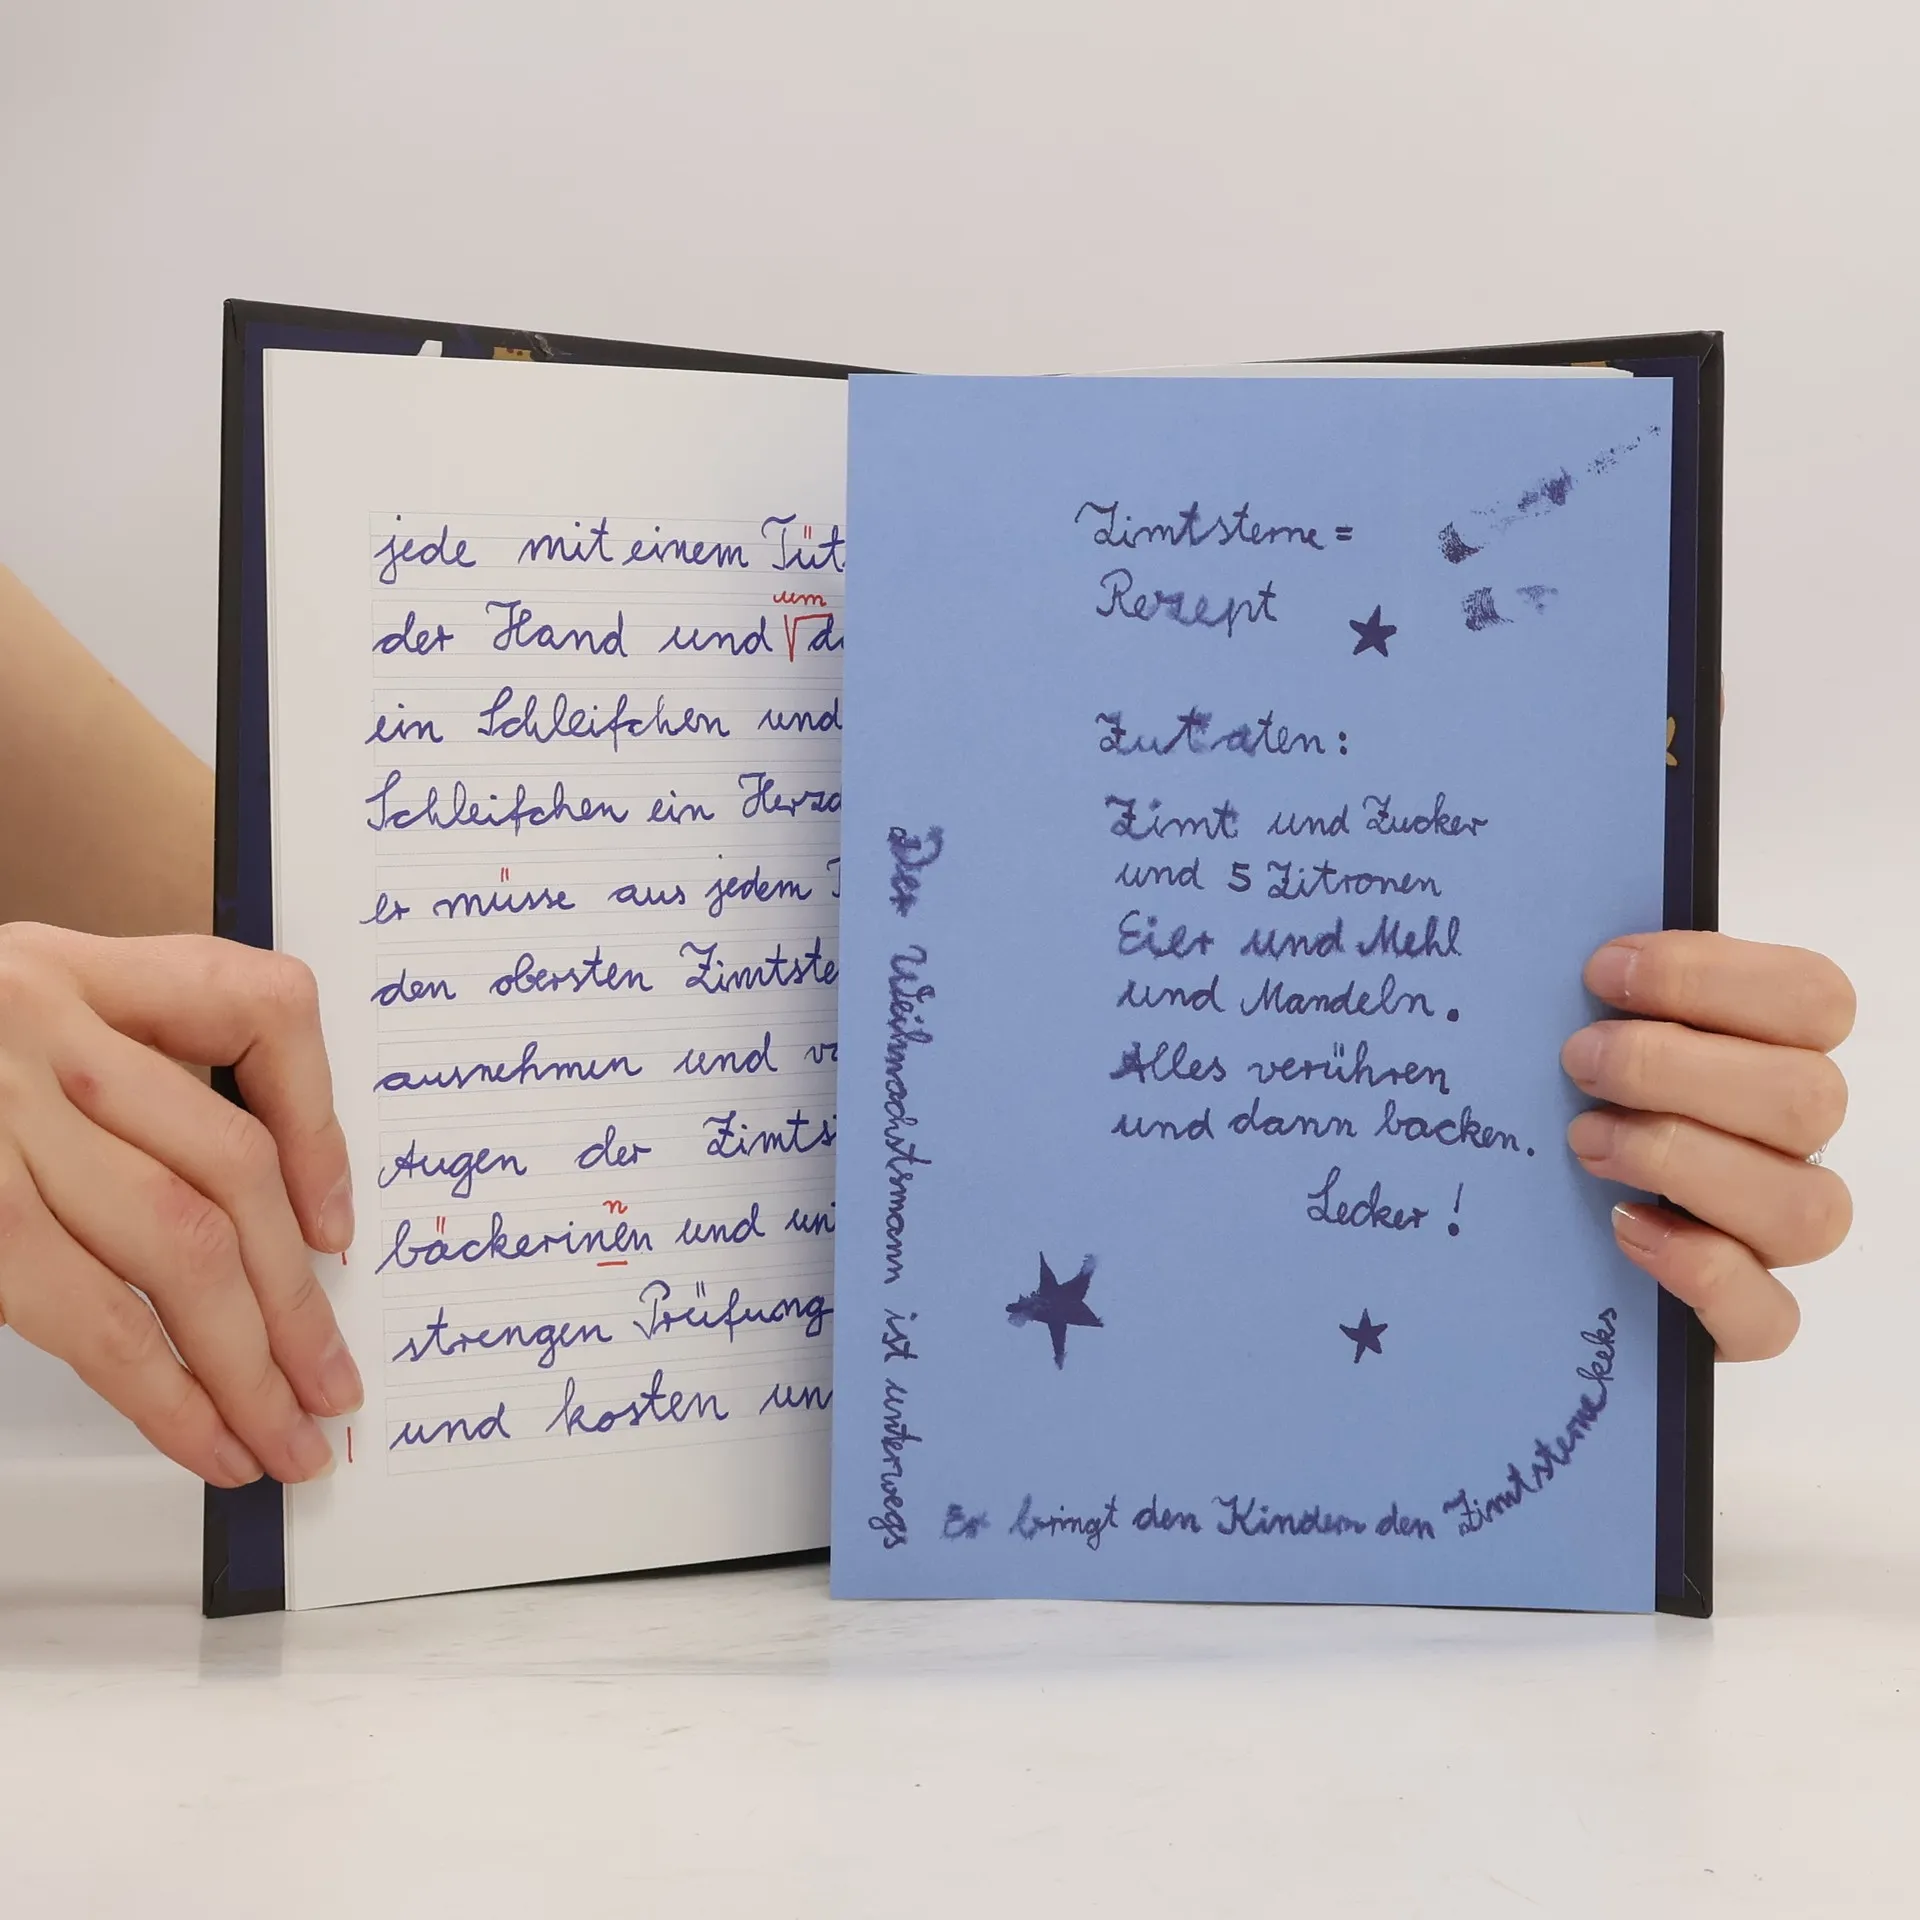 jede mit einem Tüt
der Hand und um
ein Schleifchen und
Schleifchen ein
er müsse aus jedem
den obersten Zimtste
ausnehmen und
Augen der
bäckerinen und
n
strengen Prüfung
und kosten
Zimtsterne=
Rezept
Zutaten:
Zimt und Zucker
und 5 Zitronen
Eier und Mehl
und Mandeln.
Alles verühren
und dann backen.
Lecker!
Der Weihnachtsmann ist unterwegs
Er bringt den Kindern den Zimtsternekeks